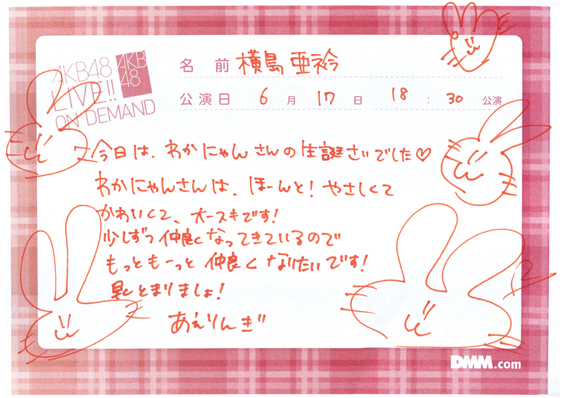 AKB48
LIVE!!
ON DEMAND
AKB
48
名 前 横島 亜衿
公演日 6 月 17 日 18 : 30 公演
今日は、わかにゃんさんの生誕さいでした♡
わかにゃんさんは、ほーんと!やさしくて
かわいくて、大スキです!
少しずつ仲良くなってきているので
もっともーっと仲良くなりたいです!
とまりましょ!
あえりんぎ
DMM.com